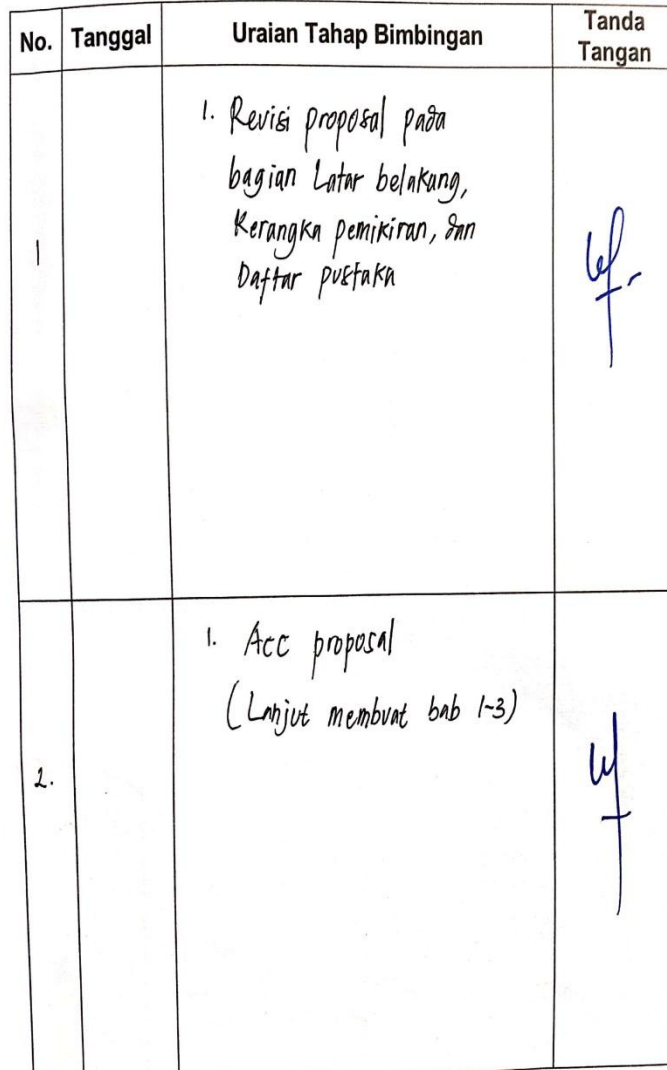 No. Tanggal Uraian Tahap Bimbingan Tanda Tangan
1
1. Revisi proposal pada
bagian Latar belakang,
Kerangka pemikiran, dan
Daftar pustaka
2.
1. Acc proposal
(Lanjut membuat bab 1-3)